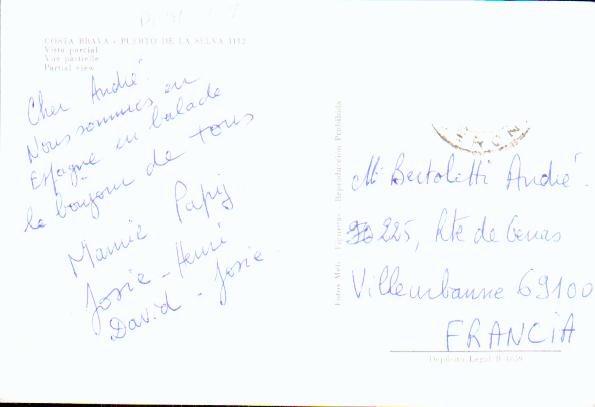 COSTA BRAVA - PUERTO DE LA SELVA 1112
Vista parcial
Vue partielle
Partial view
Cher André.
Nous sommes en
Espagne en balade
le bonjour de tous
Mamie Papy
Josie - Henri
David - Josie
Mr Bertoletti André.
225, Rte de Genas
Villeurbanne 69100
FRANCIA
Depósito Legal B
Reproducción Prohibida